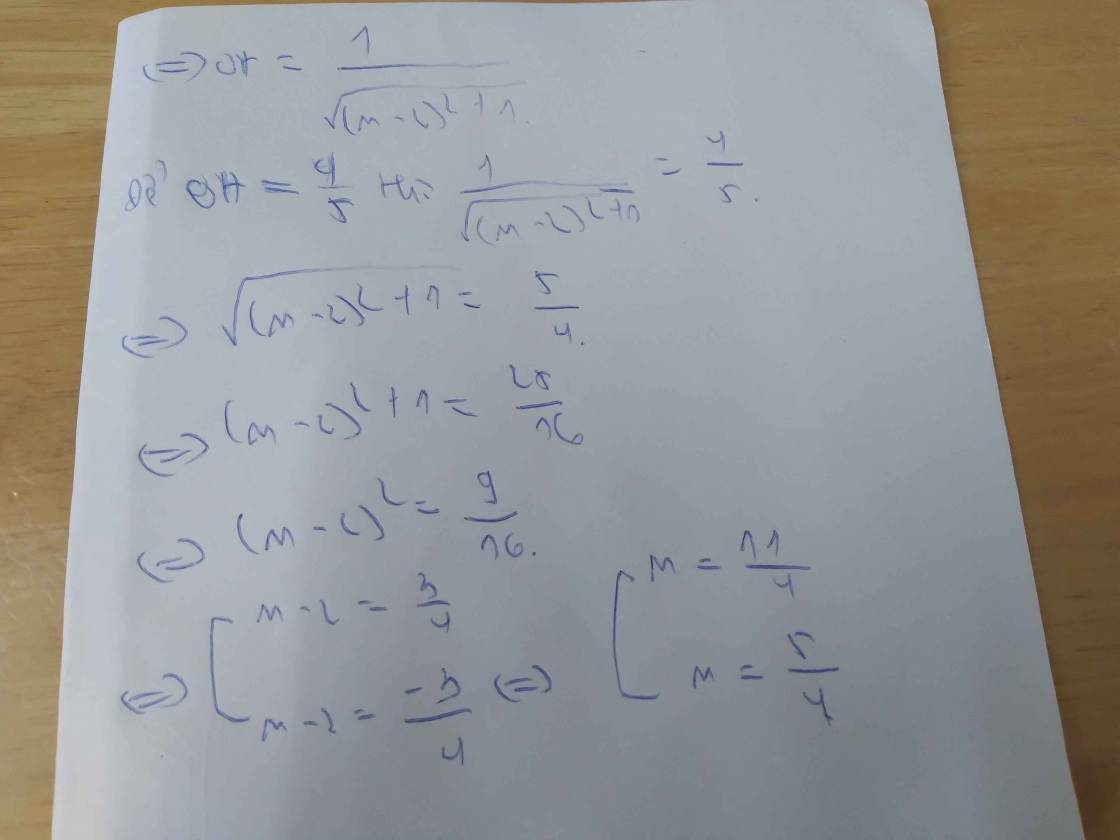 ⇔ OH = 1/√((m-2)²+1).
Để OH = 4/5 thì 1/√((m-2)²+1) = 4/5.
⇔ √((m-2)²+1) = 5/4.
⇔ (m-2)²+1 = 25/16
⇔ (m-2)² = 9/16.
⇔ [ m-2 = 3/4 ; m-2 = -3/4 ⇔ [ m = 11/4 ; m = 5/4